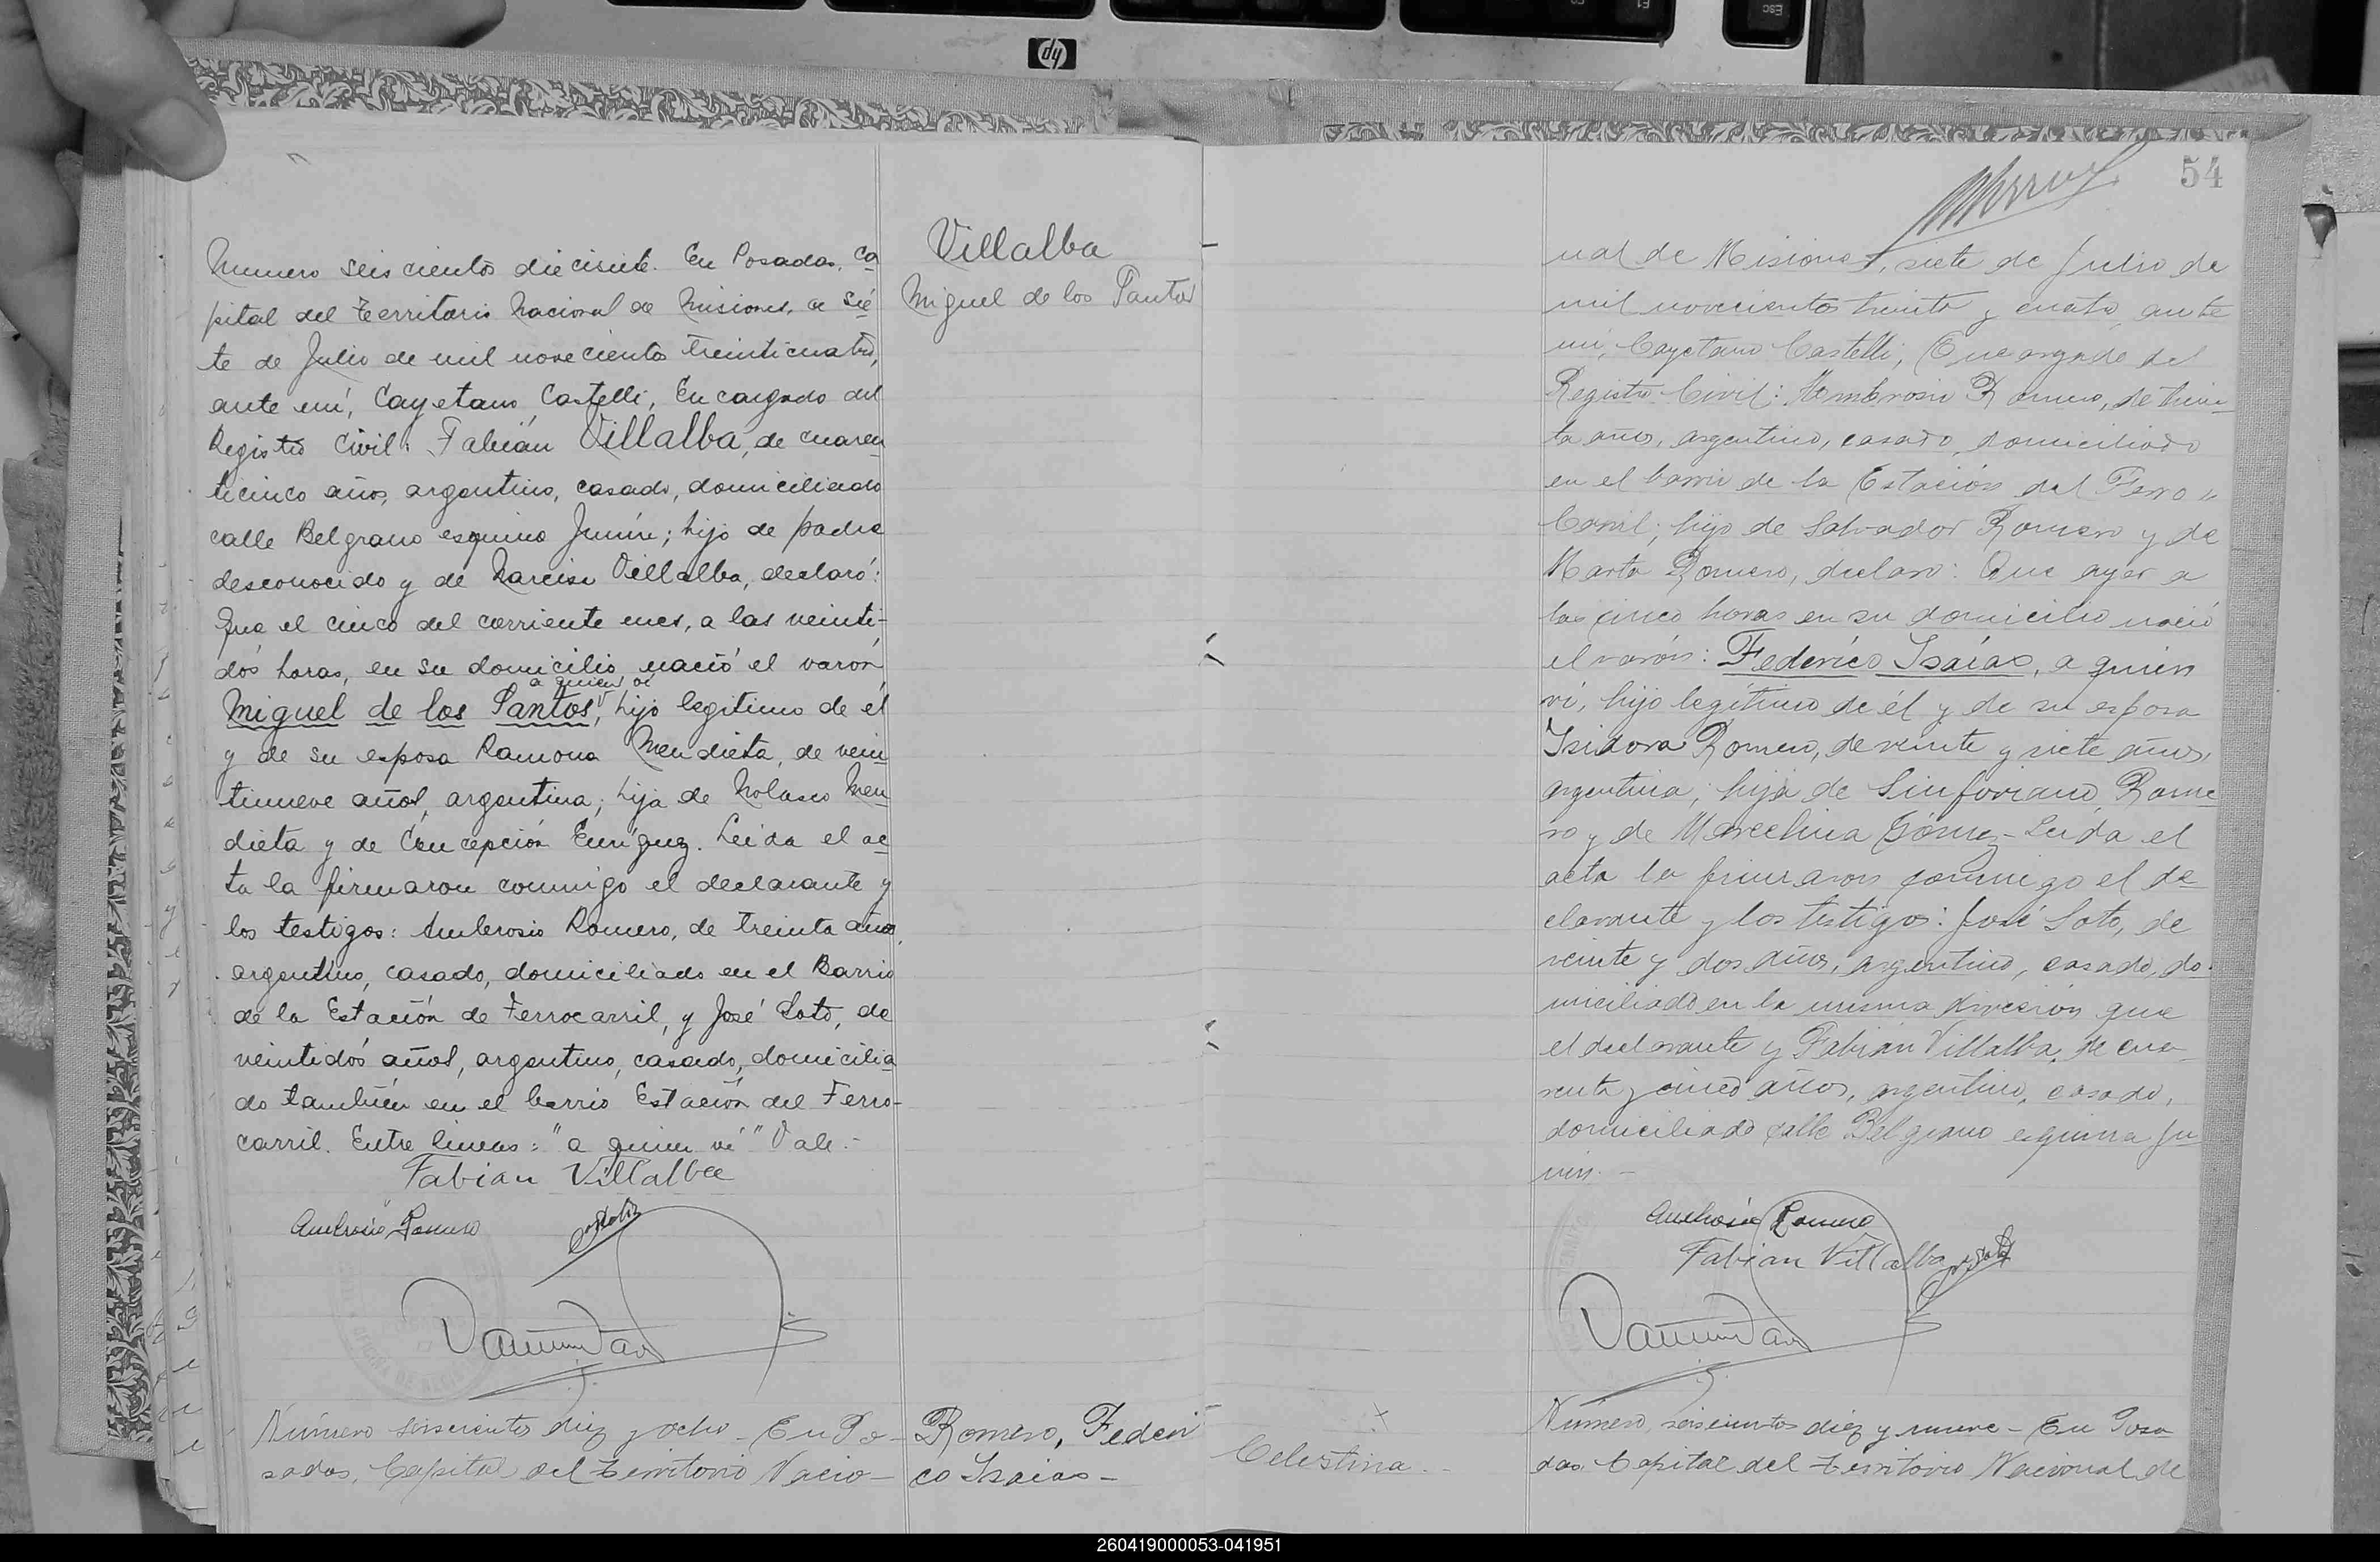 Numero seiscientos diecisiete. En Posadas, Ca
pital del Territorio Nacional de Misiones, a sie
te de Julio de mil novecientos treinticuatro,
ante mí, Cayetano Castelli, Encargado del
Registro Civil: Fabián Villalba, de cuaren
ticinco años, argentino, casado, domiciliado
calle Belgrano esquina Junín; hijo de padre
desconocido y de Narcisa Villalba, declaró:
Que el cinco del corriente mes, a las veinti-
dós horas, en su domicilio, nació el varón
a quien ví
Miguel de los Santos, hijo legítimo de él
y de su esposa Ramona Mendieta, de vein
tinueve años, argentina, hija de Nolasco Men
dieta y de Concepción Enríquez. Leída el ac
ta la firmaron conmigo el declarante y
los testigos: Ambrosio Romero, de treinta años,
argentino, casado, domiciliado en el Barrio
de la Estación de Ferrocarril, y José Soto, de
veintidós años, argentino, casado, domicilia
do también en el barrio Estación del Ferro-
carril. Entre líneas: "a quien ví" Vale.-
Fabian Villalba
Ambrosio Romero
Número seiscientos diez y ocho - En Po-
sadas, Capital del Territorio Nacio-
Villalba
Miguel de los Santos
Romero, Federi
co Isaias -
Celestina -
54
nal de Misiones, siete de Julio de
mil novecientos treinta y cuatro, ante
mi, Cayetano Castelli, Encargado del
Registro Civil: Ambrosio Romero, de trein-
ta años, argentino, casado, domiciliado
en el barrio de la Estación del Ferro "
Carril; hijo de Salvador Romero y de
Marta Romero, declaro: Que ayer a
las cinco horas en su domicilio nació
el varón: Federico Isaías, a quien
ví, hijo legítimo de él y de su esposa
Isidora Romero, de veinte y siete años,
argentina; hija de Sinforiano Rome
ro y de Marcelina Gómez - Leída el
acta la firmaron conmigo el de
clarante y los testigos: José Soto, de
veinte y dos años, argentino, casado, do-
miciliado en la misma dirección que
el declarante y Fabián Villalba, de cua-
renta y cinco años, argentino, casado,
domiciliado calle Belgrano esquina Ju
nin. -
Ambrosio Romero
Fabian Villalba
Número seiscientos diez y nueve - En Posa
das, Capital del Territorio Nacional de
260419000053-041951